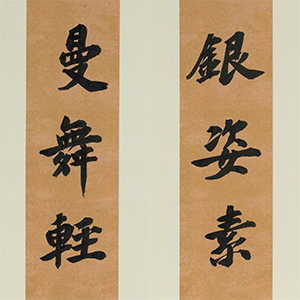 銀姿素
曼舞輕